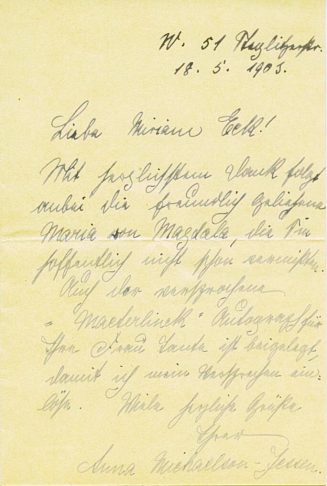 W. 51 Steglitzerstr.
18. 5. 1903.
Liebe Miriam Eck!
Mit herzlichstem Dank folgt
anbei die freundlich geliehene
Maria von Magdala, die Sie
hoffentlich nicht schon vermißten.
Auch der versprochene
"Maeterlinck" Autograph für
Ihre Frau Tante ist beigelegt,
damit ich mein Versprechen ein-
löse. Viele herzliche Grüße
Ihrer
Anna Michaelson-Jessen.